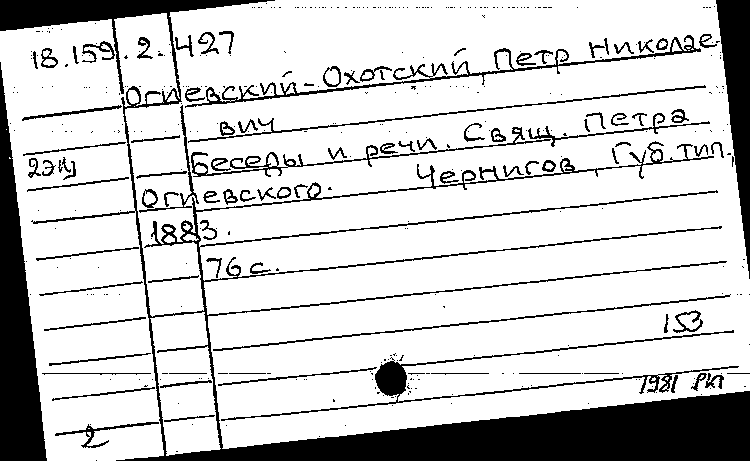 18.159.2.427
Огиевский-Охотский, Петр Николае
вич
2экз
Беседы и речи. Свящ. Петра
Огиевского. Чернигов, Губ. тип.,
1883.
76 с.
153
1981
2